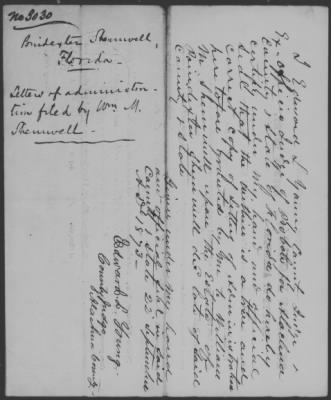 No 3030
Brindexter Shemwell,
Florida.
Letters of administra-
tion filed by Wm. M.
Shemwell.
I Edward L. Young County Judge &
Ex officio Judge of Probate for Alachua
County State of Florida do hereby
certify under my hand and official
seal that the within is a true and
correct copy of Letters of Administration
here to fore granted by me to William
M. Shemwell upon the Estate of
Poindexter Shemwell dec late of said
County & State
Given under my hand
and official seal in said
County & State 22 September
A.D. 1873
Edward L. Young
County Judge
Alachua County